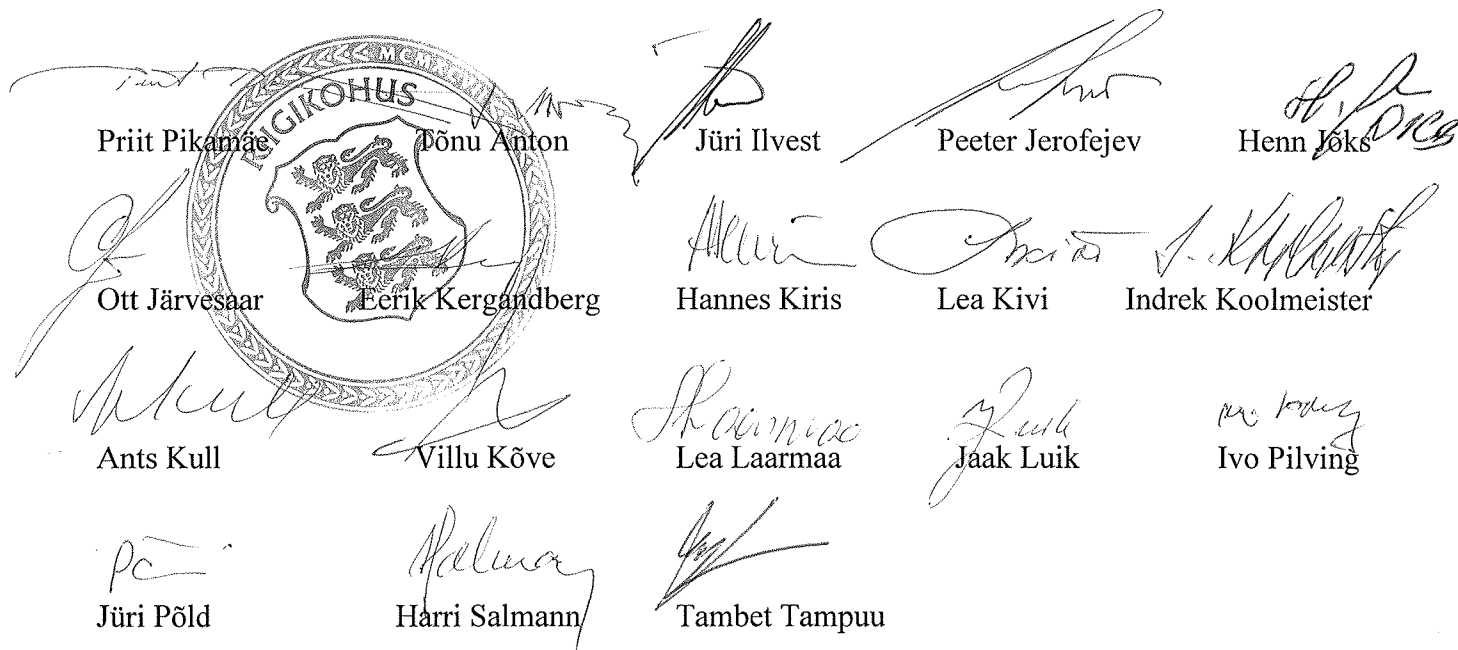 MCMXCVII
RIIGIKOHUS
Priit Pikamäe Tõnu Anton Jüri Ilvest Peeter Jerofejev Henn Jõks
Ott Järvesaar Eerik Kergandberg Hannes Kiris Lea Kivi Indrek Koolmeister
Ants Kull Villu Kõve Lea Laarmaa Jaak Luik Ivo Pilving
Jüri Põld Harri Salmann Tambet Tampuu